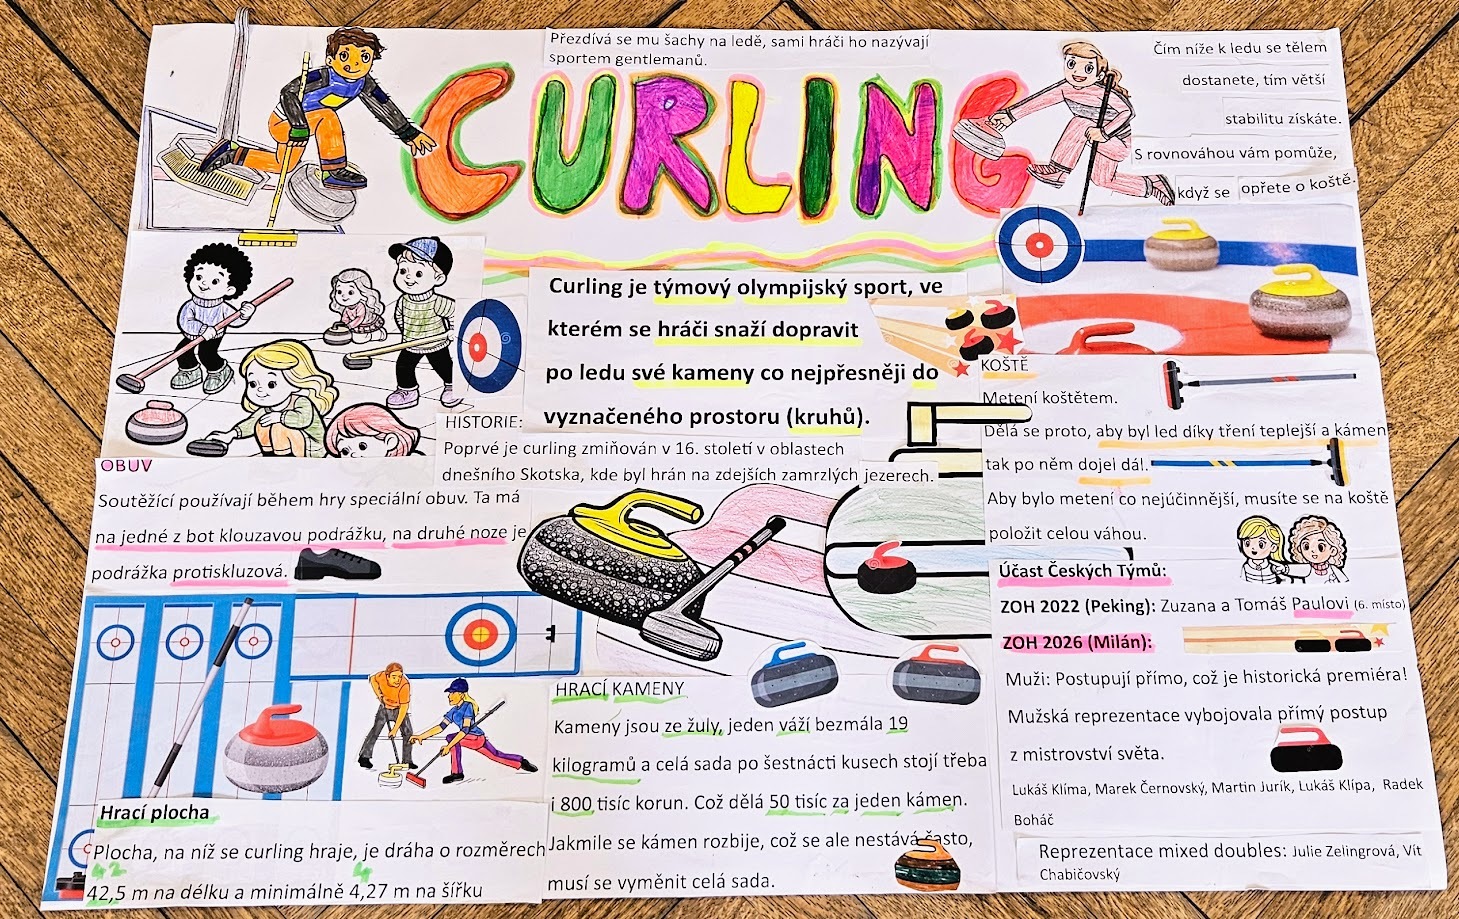 Přezdívá se mu šachy na ledě, sami hráči ho nazývají
sportem gentlemanů.
CURLING
Čím níže k ledu se tělem
dostanete, tím větší
stabilitu získáte.
S rovnováhou vám pomůže,
když se opřete o koště.
Curling je týmový olympijský sport, ve
kterém se hráči snaží dopravit
po ledu své kameny co nejpřesněji do
vyznačeného prostoru (kruhů).
HISTORIE:
Poprvé je curling zmiňován v 16. století v oblastech
dnešního Skotska, kde byl hrán na zdejších zamrzlých jezerech.
OBUV
Soutěžící používají během hry speciální obuv. Ta má
na jedné z bot klouzavou podrážku, na druhé noze je
podrážka protiskluzová.
KOŠTĚ
Metení koštětem.
Dělá se proto, aby byl led díky tření teplejší a kámen
tak po něm dojel dál.
Aby bylo metení co nejúčinnější, musíte se na koště
položit celou váhou.
Účast Českých Týmů:
ZOH 2022 (Peking): Zuzana a Tomáš Paulovi (6. místo)
ZOH 2026 (Milán):
Muži: Postupují přímo, což je historická premiéra!
Mužská reprezentace vybojovala přímý postup
z mistrovství světa.
Lukáš Klíma, Marek Černovský, Martin Jurík, Lukáš Klípa, Radek
Boháč
Reprezentace mixed doubles: Julie Zelingrová, Vít
Chabičovský
HRACÍ KAMENY
Kameny jsou ze žuly, jeden váží bezmála 19
kilogramů a celá sada po šestnácti kusech stojí třeba
i 800 tisíc korun. Což dělá 50 tisíc za jeden kámen.
Jakmile se kámen rozbije, což se ale nestává často,
musí se vyměnit celá sada.
Hrací plocha
Plocha, na níž se curling hraje, je dráha o rozměrech
42 4
42,5 m na délku a minimálně 4,27 m na šířku